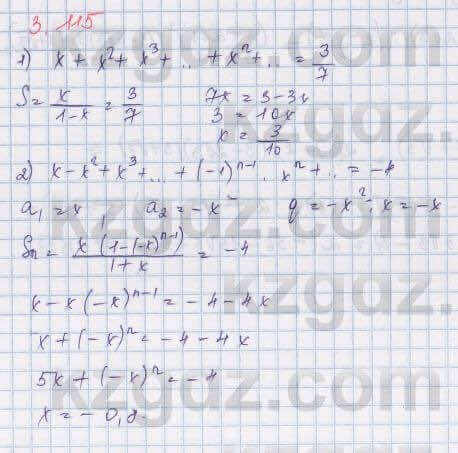 3.115
1) x + x² + x³ + .. + xⁿ + .. = 3/7
S = x/(1-x) = 3/7    7x = 3 - 3x
3 = 10x
x = 3/10
2) x - x² + x³ + ... + (-1)ⁿ⁻¹ · xⁿ + .. = -4
a₁ = x, a₂ = -x²    q = -x² : x = -x
Sₙ = x(1-(-x)ⁿ⁻¹)/(1+x) = -4
x - x(-x)ⁿ⁻¹ = -4 - 4x
x + (-x)ⁿ = -4 - 4x
5x + (-x)ⁿ = -4
x = -0,8
kzgdz.com